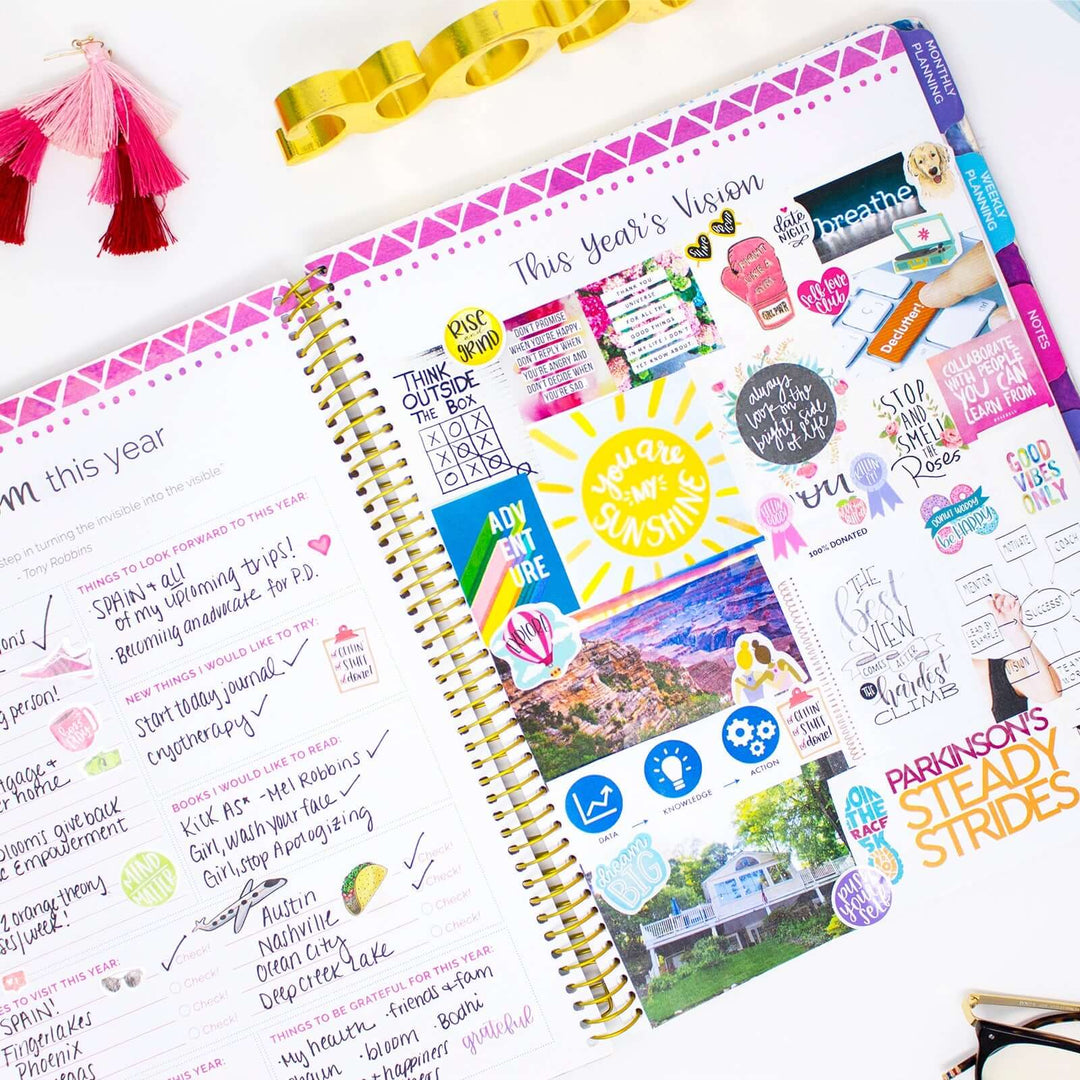 this year
step in turning the invisible into the visible."
- Tony Robbins
THINGS TO LOOK FORWARD TO THIS YEAR:
SPAIN + all
of my upcoming trips!
• Becoming an advocate for P.D.
NEW THINGS I WOULD LIKE TO TRY:
Start today journal
cryotherapy
GETTIN'
STUFF
done!
BOOKS I WOULD LIKE TO READ:
KICK AS* - Mel Robbins
Girl, wash your face
Girl, stop Apologizing
person!
home
bloom's give back
Empowerment
2 orange theory
week!
MIND
OVER
MATTER
Austin
Nashville
Ocean City
Deep Creek Lake
Check!
Check!
Check!
Check!
Check!
Check!
Check!
TO VISIT THIS YEAR:
SPAIN!
Fingerlakes
Phoenix
THINGS TO BE GRATEFUL FOR THIS YEAR:
• My health • friends + fam
• bloom • Bodhi
+ happiness
grateful
THIS YEAR:
This Year's Vision
RISE
grind
THINK
OUTSIDE
THE BOX
X O X
X O
O X O
DON'T PROMISE
WHEN YOU'RE HAPPY,
DON'T REPLY WHEN
YOU'RE ANGRY AND
DON'T DECIDE WHEN
YOU'RE SAD.
THANK YOU
UNIVERSE
FOR ALL THE
GOOD THINGS
IN MY LIFE I DON'T
YET KNOW ABOUT
FIGHT
LIKE A
GIRL
date
NIGHT
self love
club
breathe
Declutter!
COLLABORATE
WITH PEOPLE
YOU CAN
LEARN FROM
always
look on the
bright side
of life
STOP
AND
SMELL
the
Roses
GOOD
VIBES
ONLY
you are
MY
SUNSHINE
ADV
ENT
URE
EXPLORE
you
100% DONATED
DONUT WORRY
be HAPPY
THE
Best
VIEW
COMES AFTER
THE hardest
CLIMB
MOTIVATE
COACH
MENTOR
SUCCESS
LEAD BY
EXAMPLE
VISION
TEAM
GETTIN'
STUFF
done!
DATA
KNOWLEDGE
ACTION
PARKINSON'S
STEADY
STRIDES
JOIN
THE
RACE
5K
dream
BIG
PUSH
yourself
MONTHLY
PLANNING
WEEKLY
PLANNING
NOTES